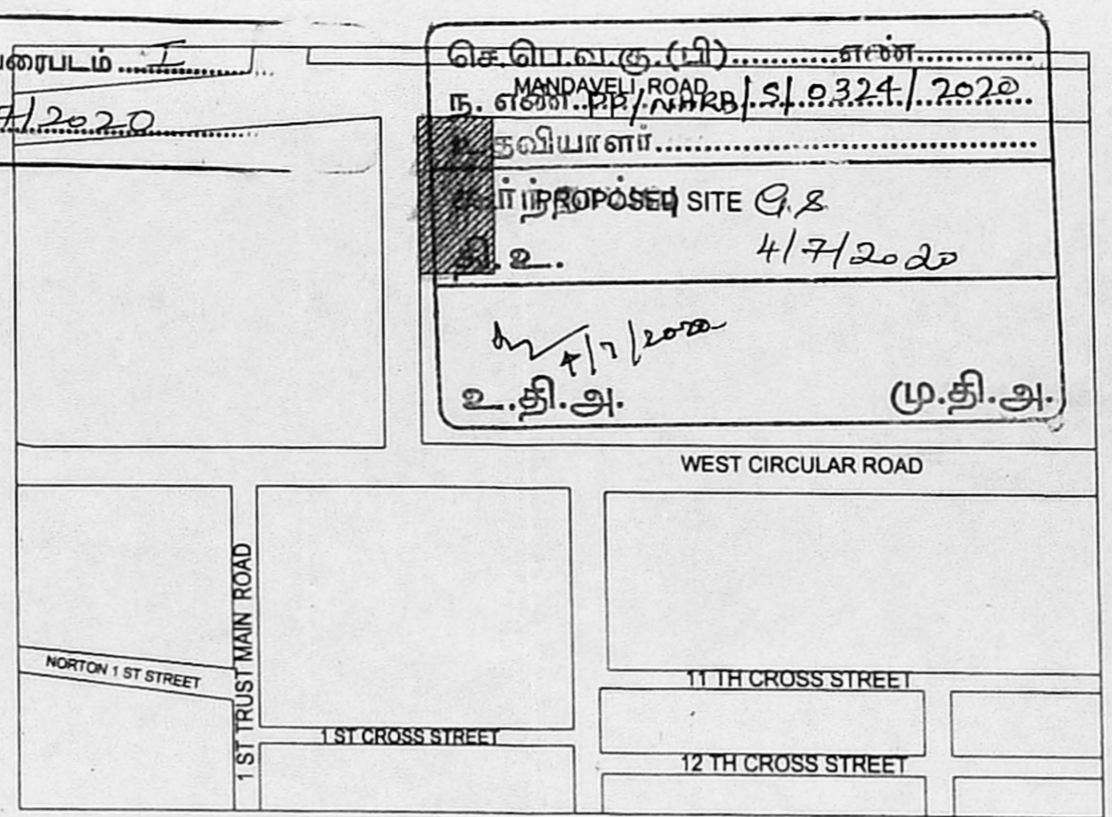 வரைபடம் ..... I .....
/2020
செ.பெ.வ.கு.(பி) ..... எண் .....
MANDAVELI ROAD
ந. எண் .. PP/NHRB/S/0324/2020
உதவியாளர் .....
PROPOSED SITE G.S.
தி.உ. 4/7/2020
4/7/2020
உ.தி.அ. மு.தி.அ.
WEST CIRCULAR ROAD
1 ST TRUST MAIN ROAD
NORTON 1 ST STREET
11 TH CROSS STREET
1 ST CROSS STREET
12 TH CROSS STREET